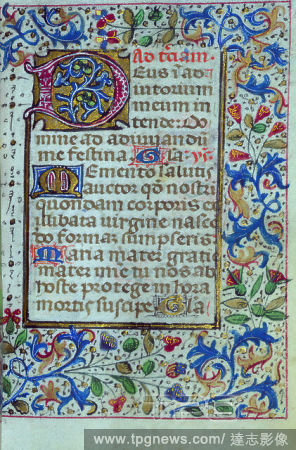 Ad t̄ciam
Deus ī ad
iutorium
meum in
tende Do
mine ad adiuuandū
me festina Gla ys
Memento salutis
auctor qō nostri
quondam corporis
illibata virgine nascē
do formā sumpseris
Maria mater gratie
mater mīe tu nos ab
hoste protege in hora
mortis suscipe Gla
www.tpgnews.com/ 達志影像